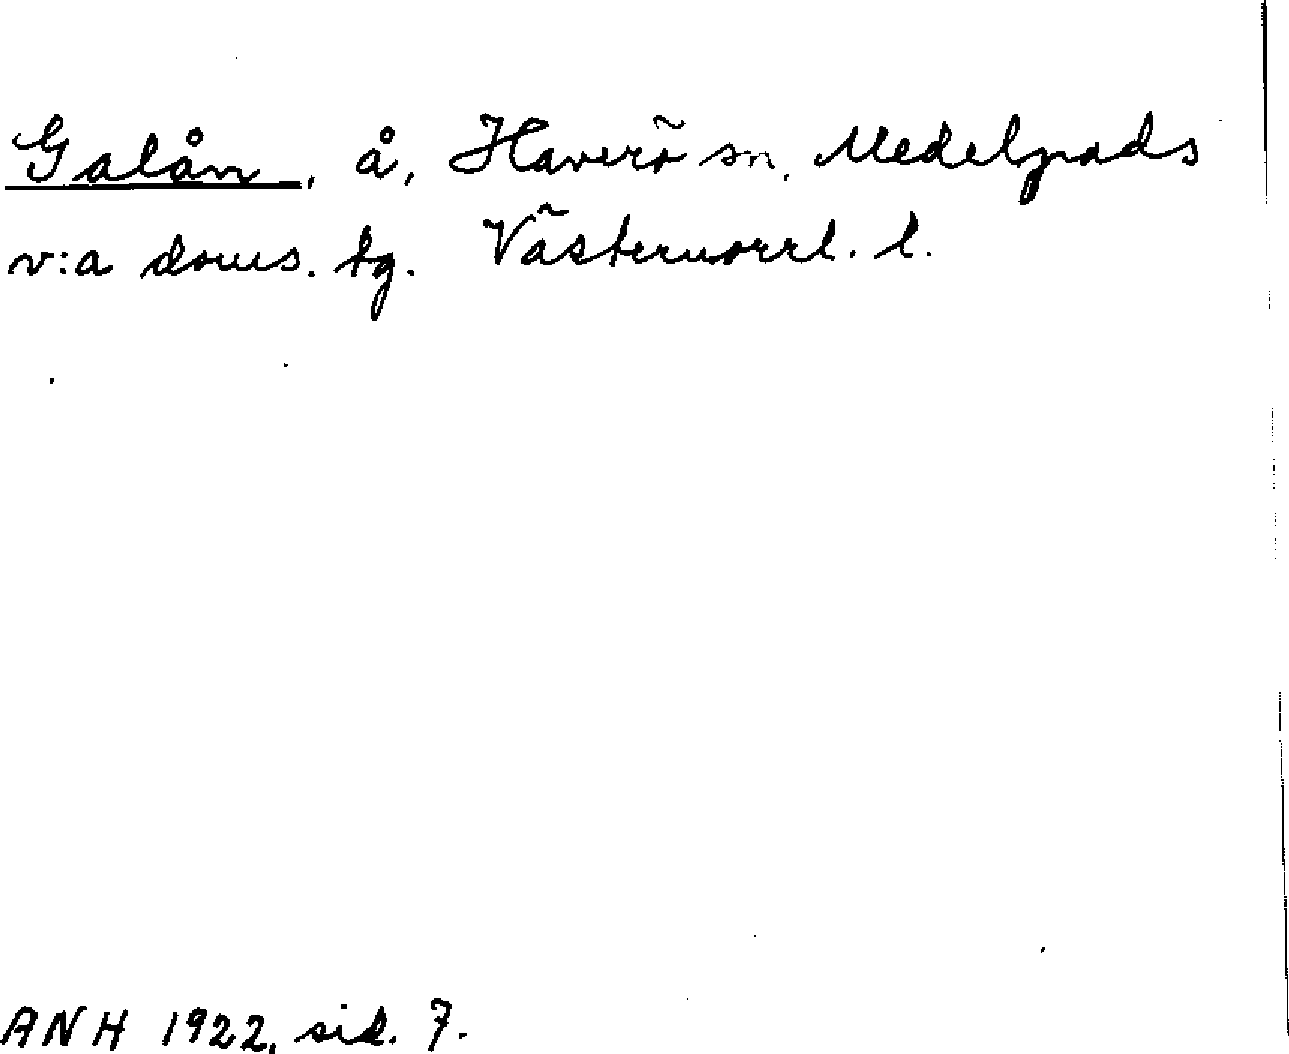 Galån, å, Haverö sn, Medelpads
v:a doms. tg. Västernorrl. l.
ANH 1922, sid. 7.